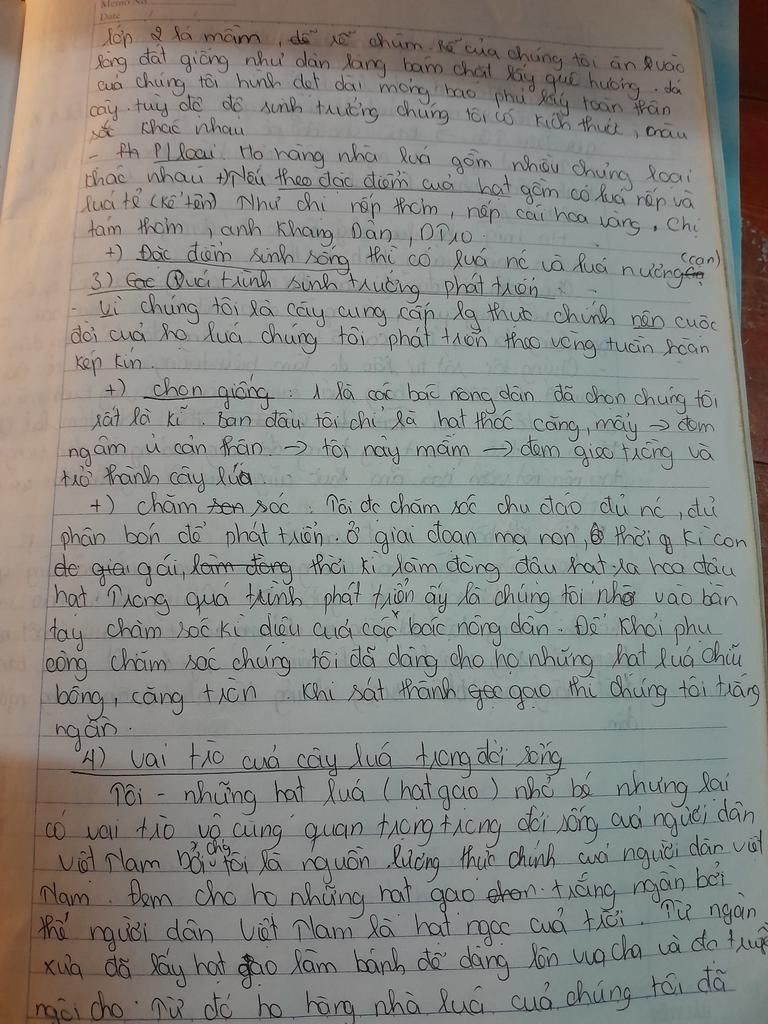 Memo No.
Date / /
lớp 2 lá mầm, rễ chùm rễ của chúng tôi ăn vào
lòng đất giống như dân làng bám chặt lấy quê hương. Lá
của chúng tôi hình dẹt dài mỏng bao phủ lấy toàn thân
cây. tùy độ độ sinh trưởng chúng tôi có kích thước, màu
sắc khác nhau
- P/loại. Họ hàng nhà lúa gồm nhiều chủng loại
khác nhau +) Nếu theo đặc điểm của hạt gồm có lúa nếp và
lúa tẻ (kể tên) Như chị nếp thơm, nếp cái hoa vàng, chị
tám thơm, anh Khang Dân, DT10.
+) Đặc điểm sinh sống thì có lúa nc và lúa nương (cạn)
3) Quá trình sinh trưởng phát triển.
- Vì chúng tôi là cây cung cấp lg thực chính nên cuộc
đời của họ lúa chúng tôi phát triển theo vòng tuần hoàn
kép kín.
+) chọn giống: 1 là các bác nông dân đã chọn chúng tôi
rất là kĩ. Ban đầu tôi chỉ là hạt thóc căng, mẩy → đem
ngâm ủ cẩn thận → tôi nảy mầm → đem gieo trồng và
trở thành cây lúa.
+) chăm sóc: Tôi đc chăm sóc chu đáo đủ nc, đủ
phân bón để phát triển. Ở giai đoạn mạ non, thời kì con
gái, thời kì làm đòng đậu hạt ra hoa đậu
hạt. Trong quá trình phát triển ấy là chúng tôi nhờ vào bàn
tay chăm sóc kì diệu của các bác nông dân. Để khỏi phụ
công chăm sóc chúng tôi đã dâng cho họ những hạt lúa chĩu
bông, căng tròn. Khi sát thành gạo thì chúng tôi trắng
ngần.
4) Vai trò của cây lúa trong đời sống
Tôi - những hạt lúa (hạt gạo) nhỏ bé nhưng lại
có vai trò vô cùng quan trọng trong đời sống của người dân
Việt Nam bởi chúng tôi là nguồn lương thực chính của người dân Việt
Nam. Đem cho họ những hạt gạo trắng ngần bởi
thế người dân Việt Nam là hạt ngọc của trời. Từ ngàn
xưa đã lấy hạt gạo làm bánh để dâng lên vua cha và đc truyền
ngôi cho. Từ đó họ hàng nhà lúa của chúng tôi đã